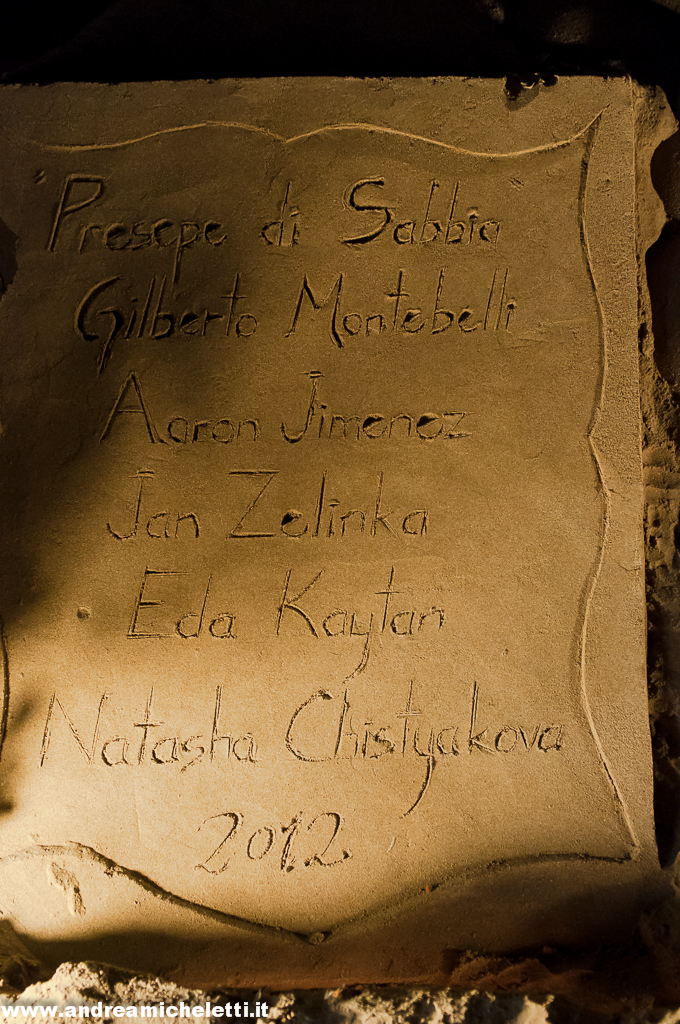 "Presepe di Sabbia"
Gilberto Montebelli
Aaron Jimenez
Jan Zelinka
Eda Kaytan
Natasha Chistyakova
2012
www.andreamicheletti.it